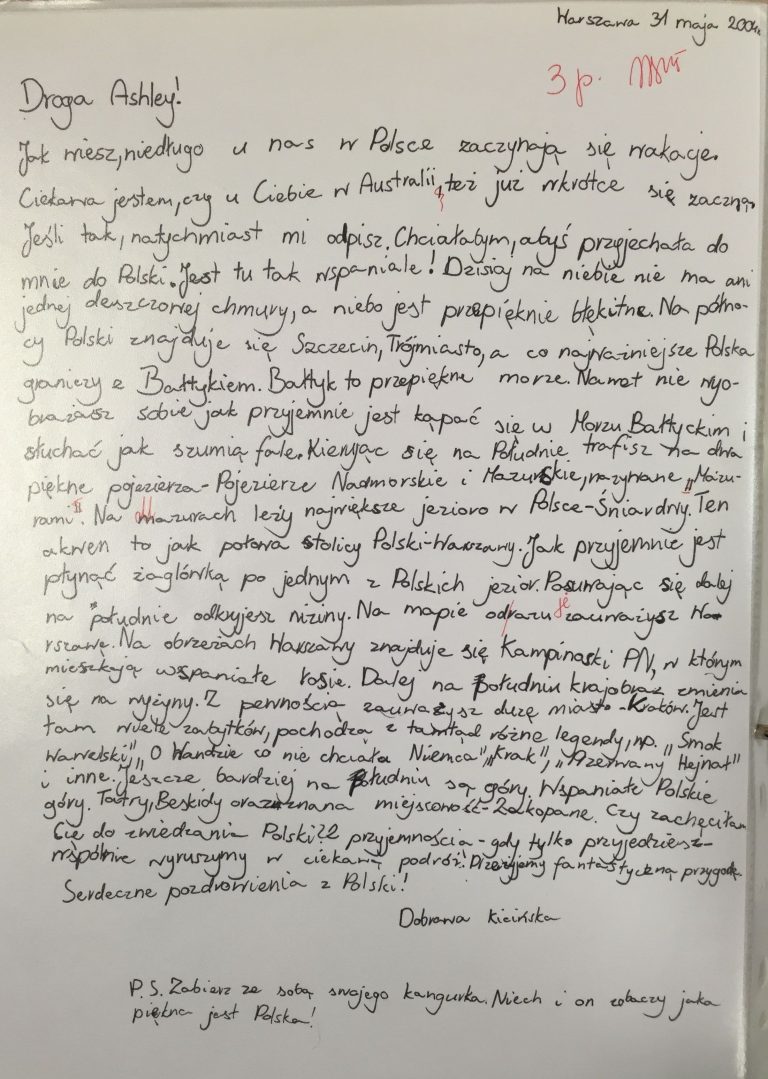 Warszawa 31 maja 2004r.
3 p.
Droga Ashley!
Jak wiesz, niedługo u nas w Polsce zaczynają się wakacje.
Ciekawa jestem, czy u Ciebie w Australii, też już wkrótce się zaczną.
Jeśli tak, natychmiast mi odpisz. Chciałabym, abyś przyjechała do
mnie do Polski. Jest tu tak wspaniale! Dzisiaj na niebie nie ma ani
jednej deszczowej chmury, a niebo jest przepięknie błękitne. Na półno-
cy Polski znajduje się Szczecin, Trójmiasto, a co najważniejsze Polska
graniczy z Bałtykiem. Bałtyk to przepiękne morze. Nawet nie wyo-
brażasz sobie jak przyjemnie jest kąpać się w Morzu Bałtyckim i
słuchać jak szumią fale. Kierując się na Południe trafisz na dwa
piękne pojezierza - Pojezierze Nadmorskie i Mazurskie, nazywane „Mazu-
rami". Na Mazurach leży największe jezioro w Polsce - Śniardwy. Ten
akwen to jak połowa stolicy Polski - Warszawy. Jak przyjemnie jest
płynąć żaglówką po jednym z Polskich jezior. Posuwając się dalej
na południe odkryjesz niziny. Na mapie odrazu je zauważysz Wa-
rszawę. Na obrzeżach Warszawy znajduje się Kampinoski PN, w którym
mieszkają wspaniałe łosie. Dalej na Południu krajobraz zmienia
się na wyżyny. Z pewnością zauważysz duże miasto - Kraków. Jest
tam wiele zabytków, pochodzą z tamtąd różne legendy, np. „Smok
Wawelski", „O Wandzie co nie chciała Niemca", „Krak", „Przerwany Hejnał"
i inne. Jeszcze bardziej na Południu są góry. Wspaniałe Polskie
góry. Tatry, Beskidy oraz znana miejscowość - Zakopane. Czy zachęciłam
Cię do zwiedzania Polski? Z przyjemnością - gdy tylko przyjedziesz -
wspólnie wyruszymy w ciekawą podróż! Przeżyjemy fantastyczną przygodę.
Serdeczne pozdrowienia z Polski!
Dobrawa Kicińska
P.S. Zabierz ze sobą swojego kangurka. Niech i on zobaczy jaka
piękna jest Polska!